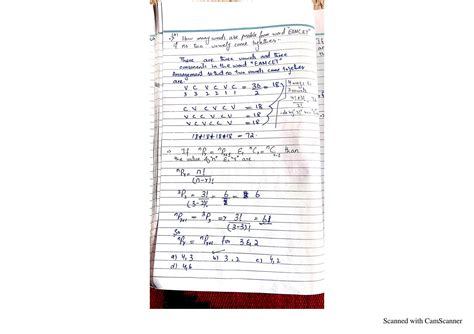 How many words are possible from word "EAMCET"
if no two vowels come together.
There are three vowels and three
consonants in the word "EAMCET"
Arrangement so that no two vowels come together
are.
V C V C V C = 36/2 = 18
3 3 2 2 1 1
C V C V C V = 18
V C C V C V = 18
V C V C C V = 18
18+18+18+18 = 72.
⇒ If nPr = nPr+1 & nCr = nCr-1 than
the value of "n" & "r" are
nPr = n!/(n-r)!
3P2 = 3!/(3-2)! = 6/1 = 6
nPr+1 = 3P3 ⇒ 3!/(3-3)! = 6
So
nPr = nPr+1 for 3 & 2
a) 4,3 b) 3,2 c) 4,2
d) 4,6
Scanned with CamScanner